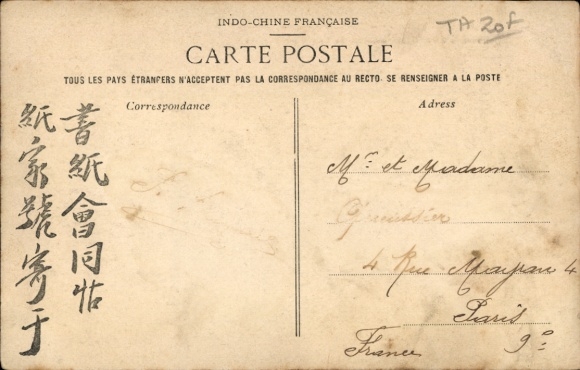 INDO-CHINE FRANÇAISE
TA 20f
CARTE POSTALE
TOUS LES PAYS ÉTRANGERS N'ACCEPTENT PAS LA CORRESPONDANCE AU RECTO. SE RENSEIGNER A LA POSTE
Correspondance
書紙會同
紙家號寄于
Adresse
Mr et Madame
4 Rue 4
Paris
9e
France